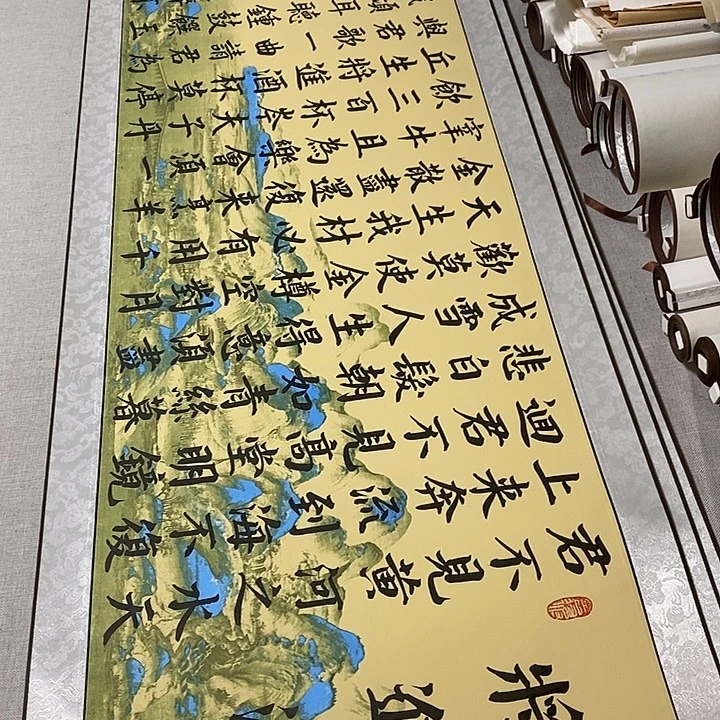 君不見黃河之水天
上來奔流到海不復
迴君不見高堂明鏡
悲白髮朝如青絲暮
成雪人生得意須盡
歡莫使金樽空對月
天生我材必有用千
金散盡還復來烹羊
宰牛且為樂會須一
飲三百杯岑夫子丹
丘生將進酒杯莫停
與君歌一曲請君為
我傾耳聽鐘鼓饌玉